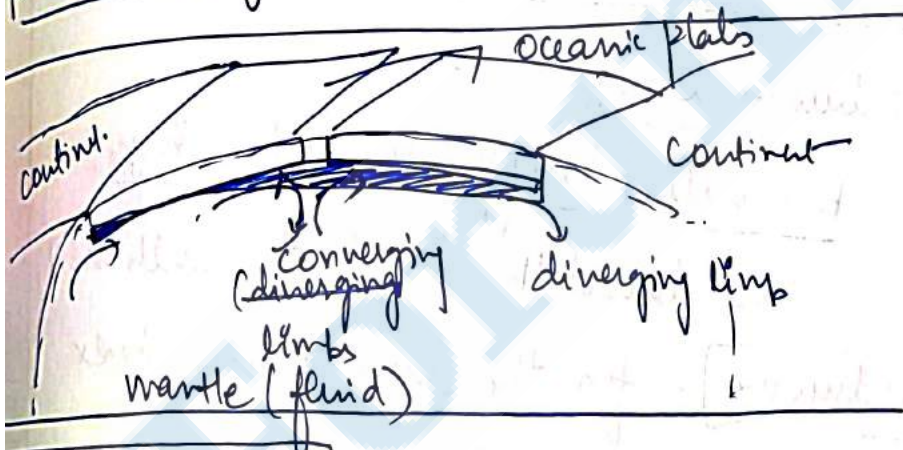 oceanic plats
contint.
Continent
converging
(diverging
limbs
diverging limb
mantle (fluid)
Forum